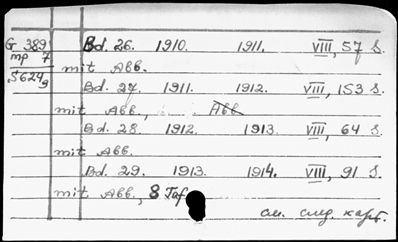 G 389 Bd. 26. 1910. 1911. VIII, 57 S.
mp 7
S624g mit Abb.
Bd. 27. 1911. 1912. VIII, 153 S.
mit Abb., Abb
Bd. 28. 1912. 1913. VIII, 64 S.
mit Abb.
Bd. 29. 1913. 1914. VIII, 91 S.
mit Abb., 8 Taf
см. след. карт.